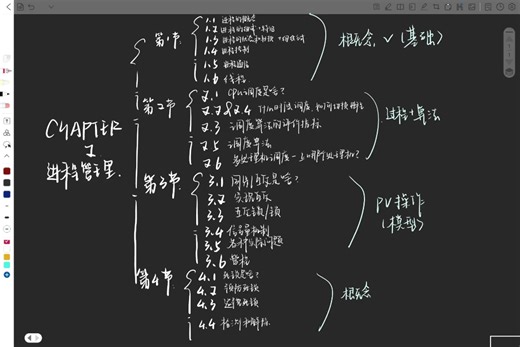 CHAPTER 2
进程管理
第1节
1.1 进程的概念
1.2 进程的组成·特征
1.3
1.4 进程控制
1.5 进程通信
1.6 线程
概念 ✓ (基础)
第2节
2.1 CPU调度是啥?
2.2 & 2.4
2.3 调度算法的评价指标
2.5 调度算法
2.6 多处理机调度
过程+算法
第3节
3.1 同步互斥是啥?
3.2 实现互斥
3.3 互斥锁/锁
3.4 信号量机制
3.5 各种 问题
3.6 管程
PV操作
(模型)
第4节
4.1 死锁是啥?
4.2 预防死锁
4.3 避免死锁
4.4 检测和解除
概念